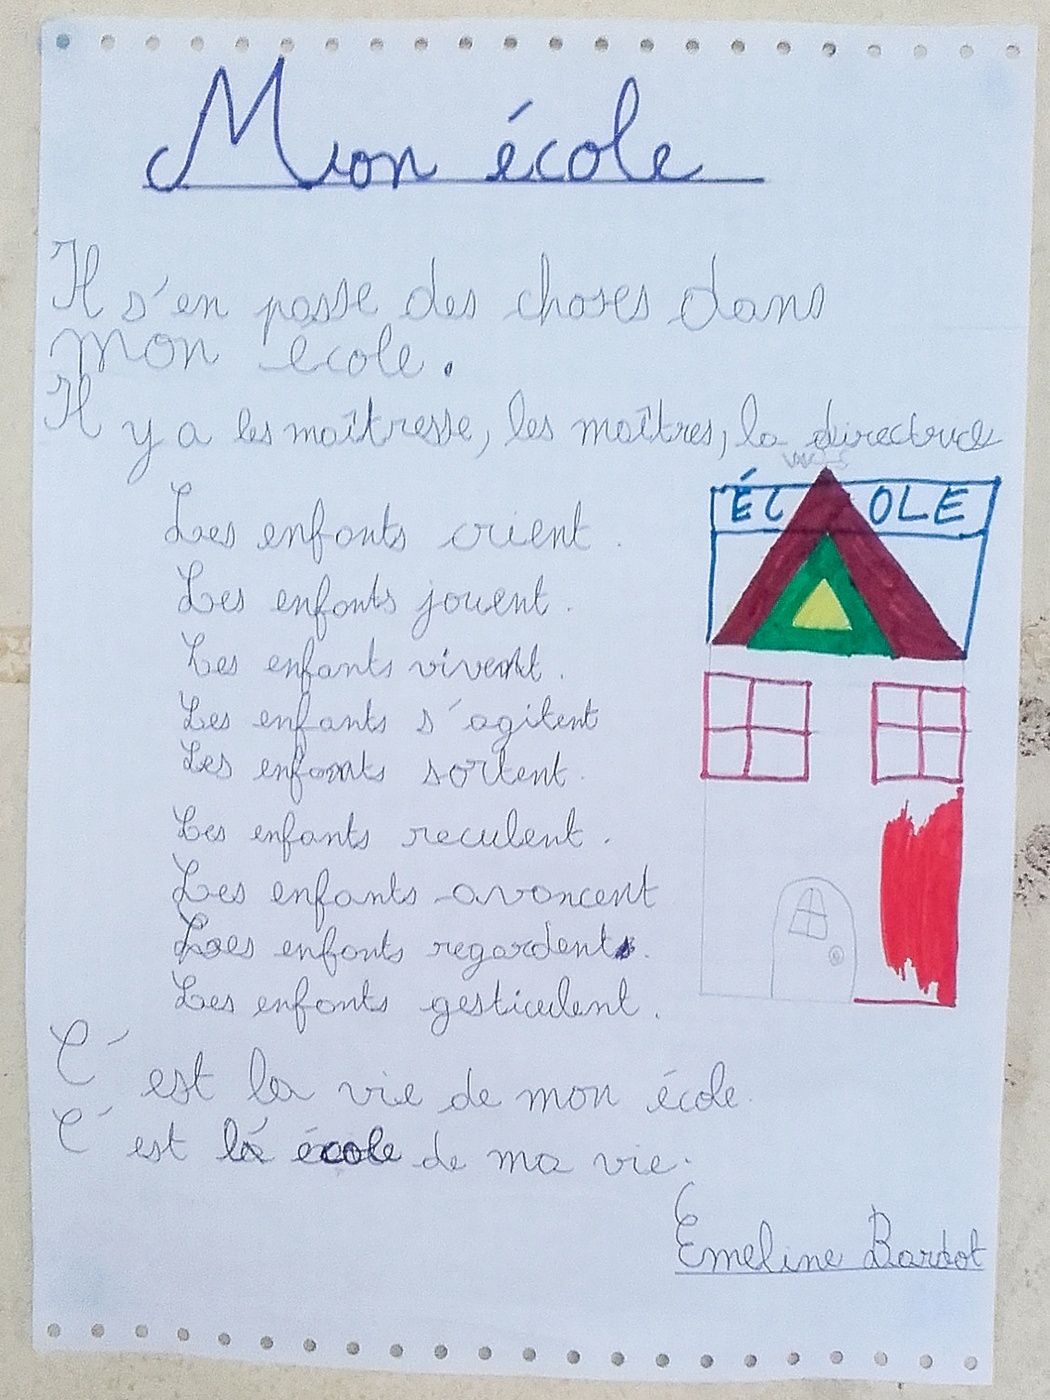 Mon école
Il s'en passe des choses dans
mon école.
Il y a les maîtresse, les maîtres, la directrice
ÉCOLE
Les enfants crient.
Les enfants jouent.
Les enfants vivent.
Les enfants s'agitent
Les enfants sortent.
Les enfants reculent.
Les enfants avancent
Les enfants regardent.
Les enfants gesticulent.
C'est la vie de mon école.
C'est l'école de ma vie.
Emeline Bardot